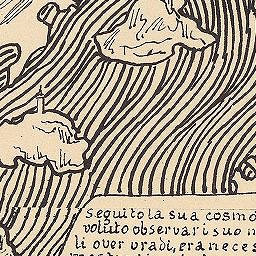 seguito la sua cosmo
voluto observari suo n
li over vradi, era neces